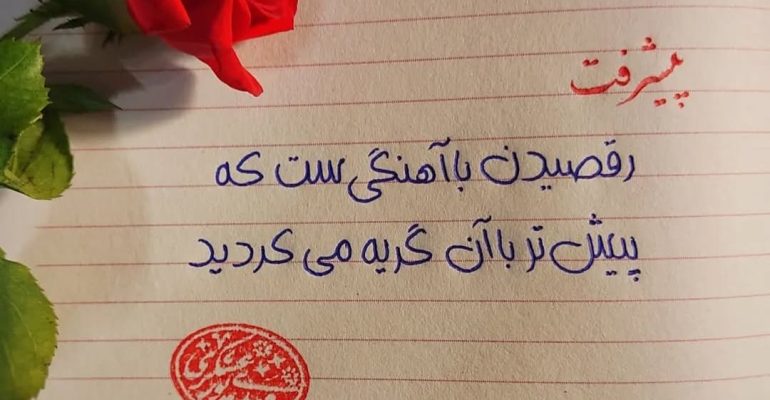 پیشرفت
رقصیدن با آهنگی ست که
پیش تر با آن گریه می کردید